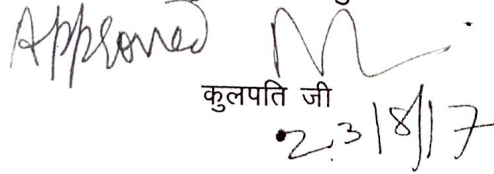 Approved
कुलपति जी
23/8/17